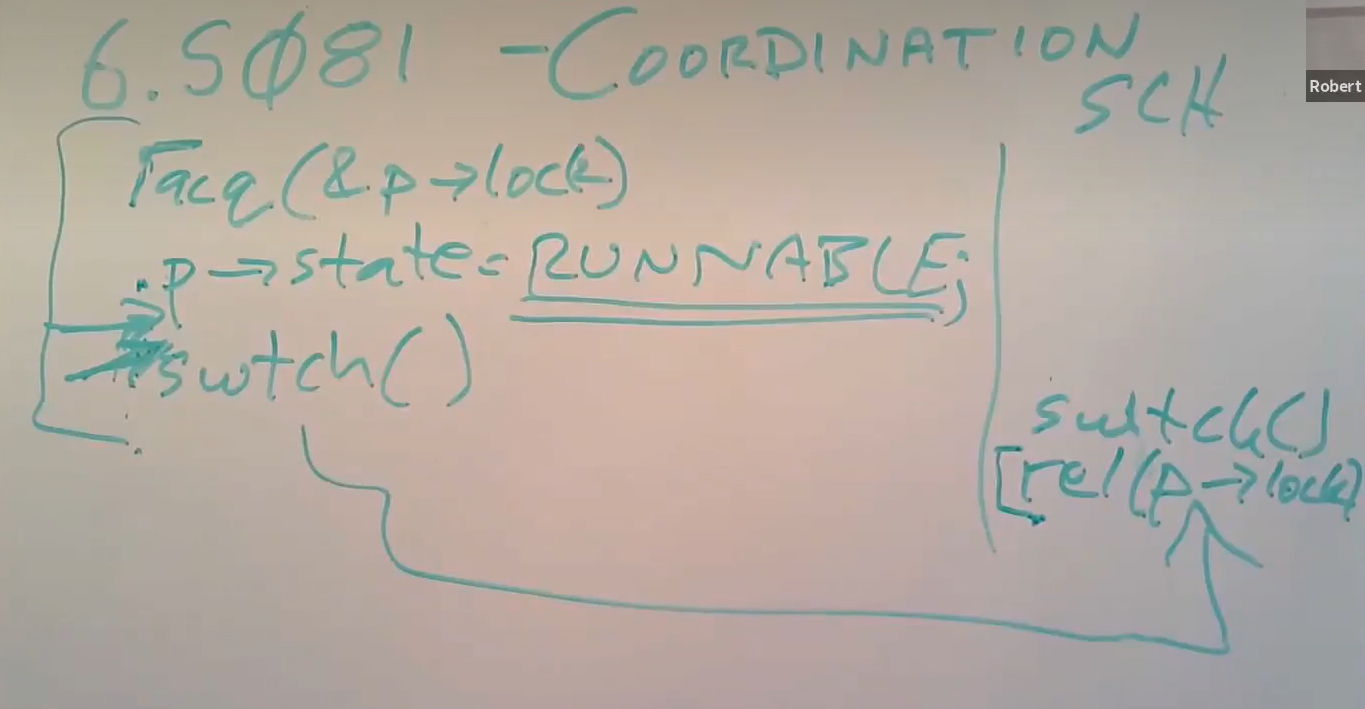 6.SØ81 - COORDINATION
SCH
acq(&p→lock)
p→state=RUNNABLE;
swtch()
swtch()
rel(p→lock)
Robert